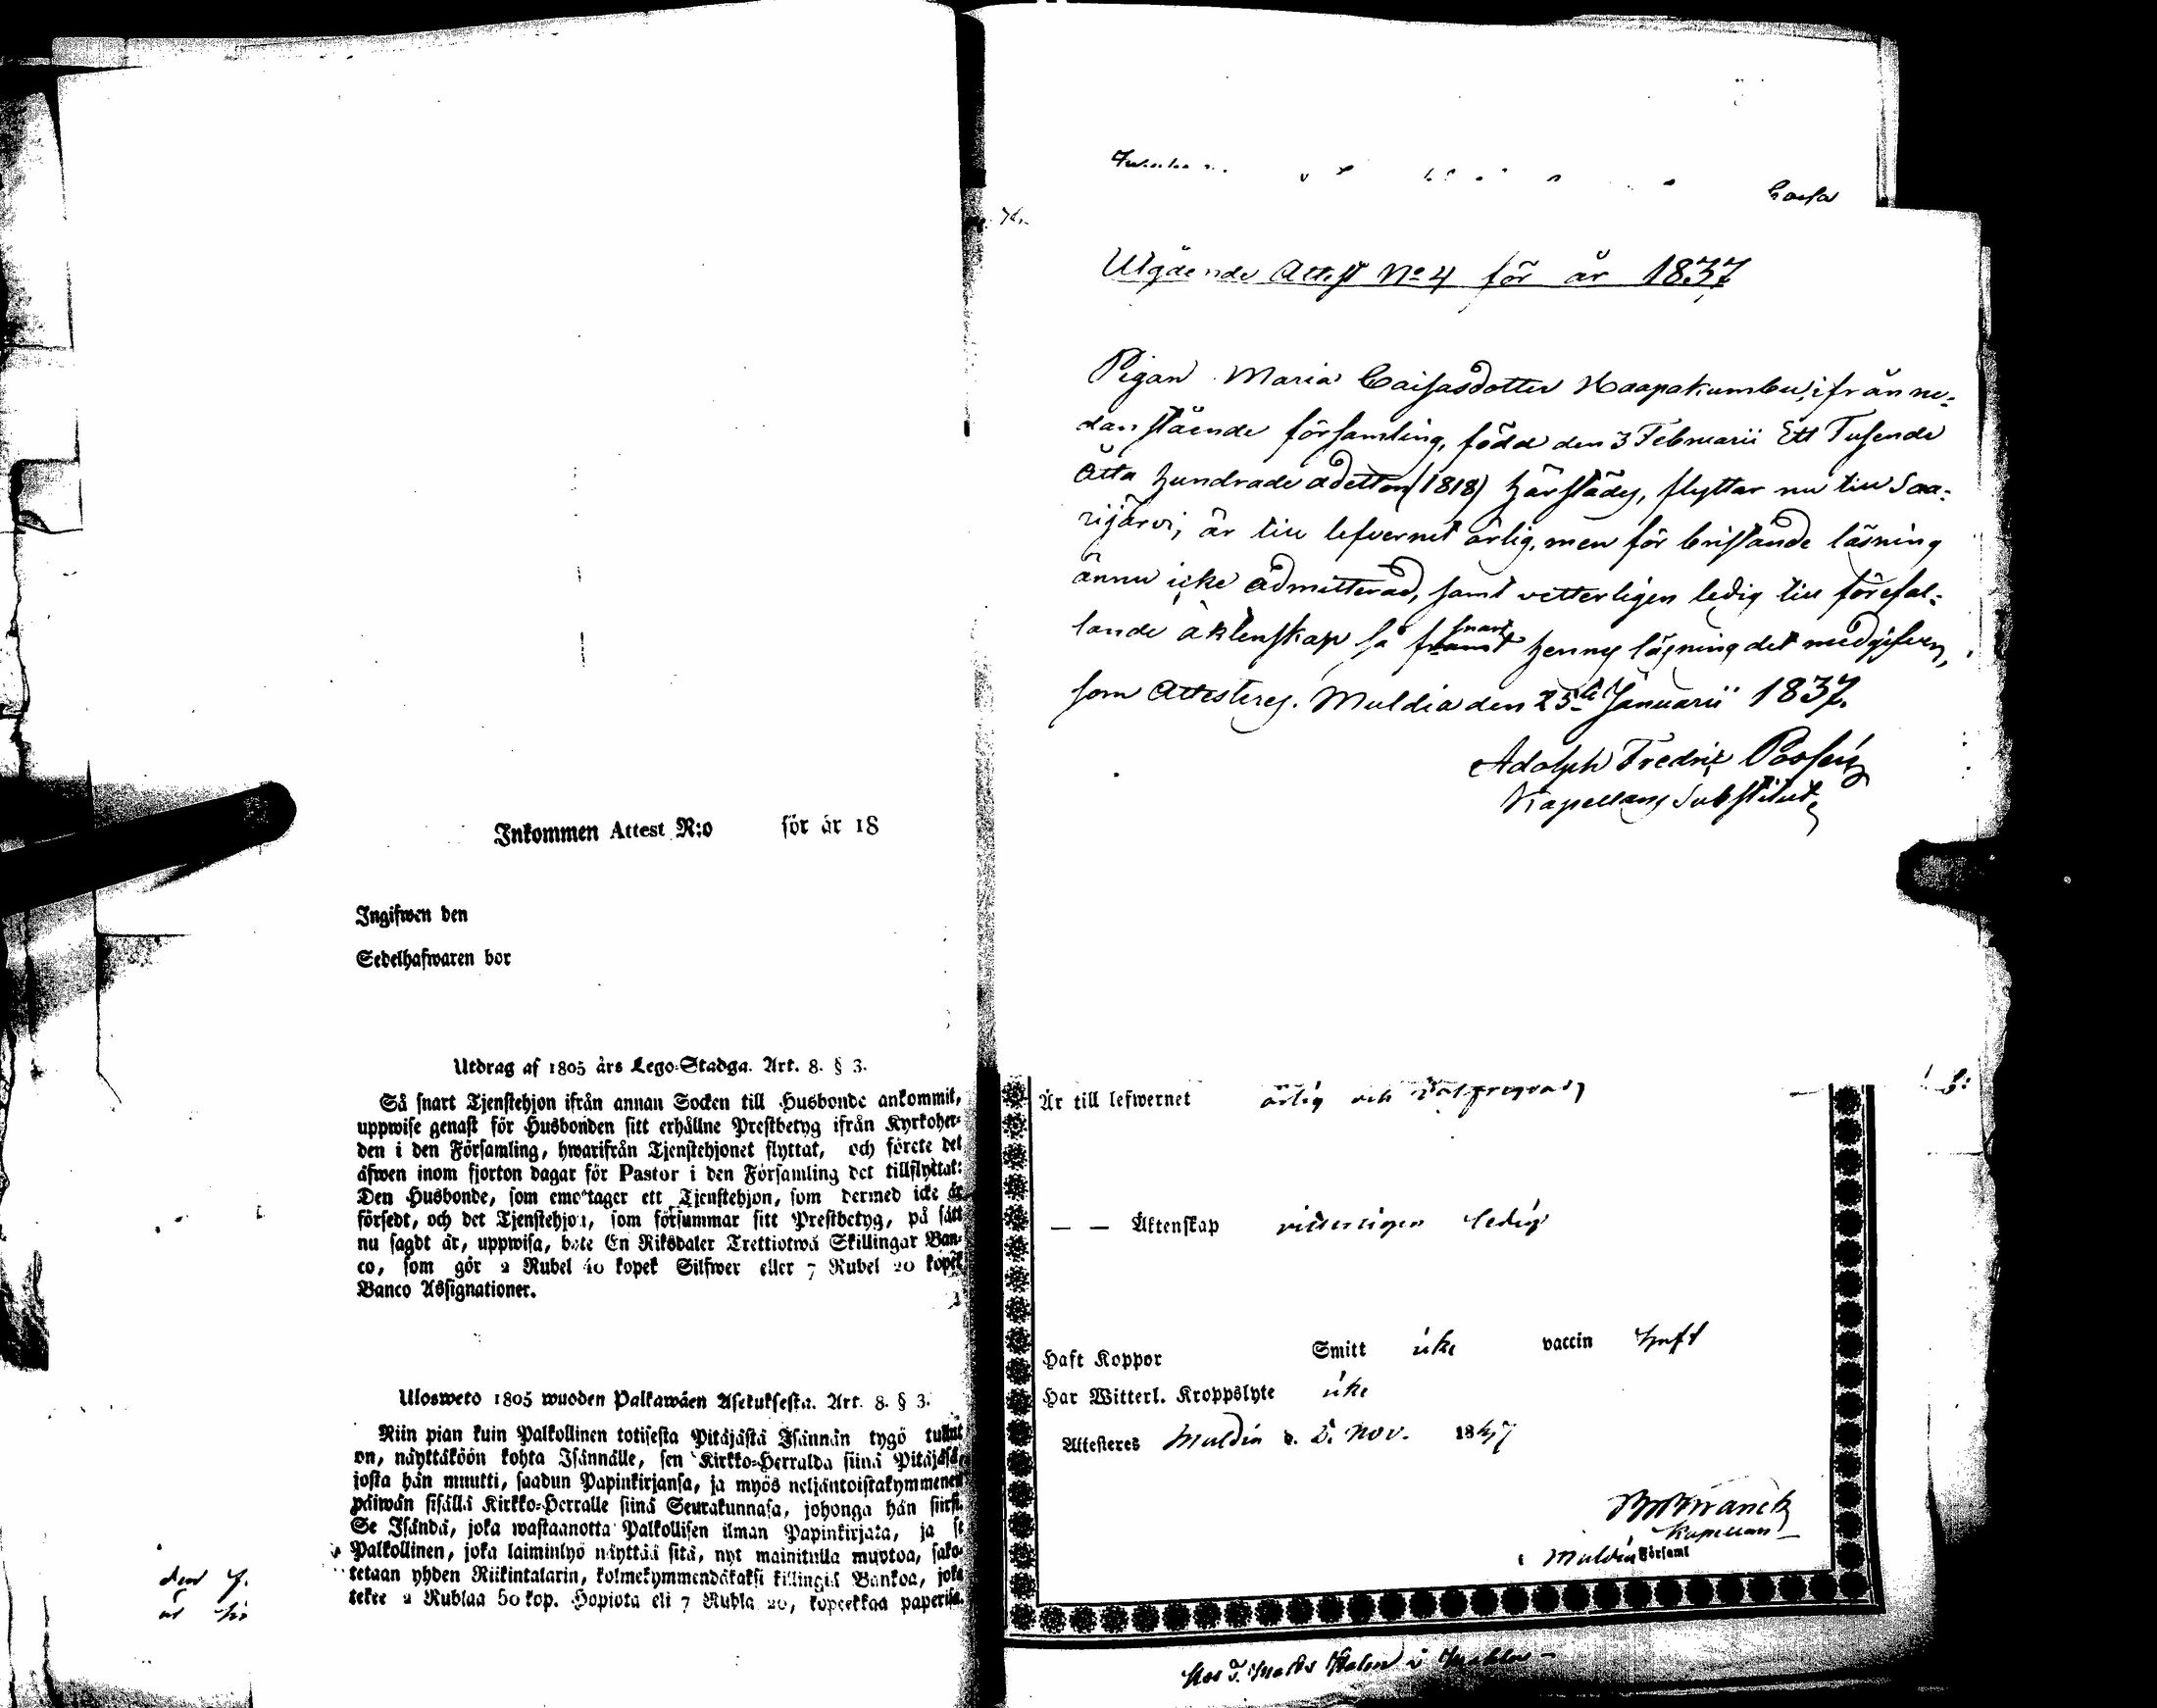 Inkommen Attest N:o för år 18
Ingifwen den
Sedelhafwaren bor
Utdrag af 1805 års Lego-Stadga. Art. 8. § 3.
Så snart Tjenstehjon ifrån annan Socken till Husbonde ankommit,
uppwise genast för Husbonden sitt erhållne Prestbetyg ifrån Kyrkoher-
den i den Församling, hwarifrån Tjenstehjonet flyttat, och förete det
äfwen inom fjorton dagar för Pastor i den Församling det tillflyttat:
Den Husbonde, som emottager ett Tjenstehjon, som dermed icke är
försedt, och det Tjenstehjon, som försummar sitt Prestbetyg, på sätt
nu sagdt är, uppwisa, böte En Riksdaler Trettiotwå Skillingar Ban-
co, som gör 2 Rubel 40 kopek Silfwer eller 7 Rubel 20 kopek
Banco Assignationer.
Ulosweto 1805 wuoden Palkawäen Asetuksesta. Art. 8. § 3.
Niin pian kuin Palkollinen totisesta Pitäjästä Isännän tygö tullut
on, näyttäköön kohta Isännälle, sen Kirkko-Herralda siinä Pitäjäsä,
josta hän muutti, saadun Papinkirjansa, ja myös neljäntoistakymmenen
päiwän sisällä Kirkko-Herralle siinä Seurakunnasa, johonga hän siirsi.
Se Isändä, joka wastaanotta Palkollisen ilman Papinkirjata, ja se
Palkollinen, joka laiminlyö näyttää sitä, nyt mainitulla muotoa, sako-
tetaan yhden Riikintalarin, kolmekymmendäkaksi killingiä Bankoa, joka
tekee 2 Rublaa 50 kop. Hopiota eli 7 Rubla 20, kopeekkaa paperisa.
Caisa
Utgående Attest No 4 för år 1837
Pigan Maria Caisasdotter Haapakumbu, ifrån ne-
danstående församling, född den 3 Februarii Ett Tusende
Åtta hundrade aderton (1818) härstädes, flyttar nu till Saa-
rijärvi; är till lefvernet ärlig, men för bristande läsning
ännu icke admitterad, samt vetterligen ledig till förefal-
lande äktenskap så snart hennes läsning det medgifver,
som Attesteres. Muldia den 25te Januarii 1837.
Adolph Fredric
Kapellans Substitut
Är till lefwernet ärlig och
— — Äktenskap vitterligen ledig
Haft Koppor Smitt icke vaccin haft
Har Witterl. Kroppslyte icke
Attesteres Muldia d. 5 Nov. 1847
Kapellan
i Muldia Församl